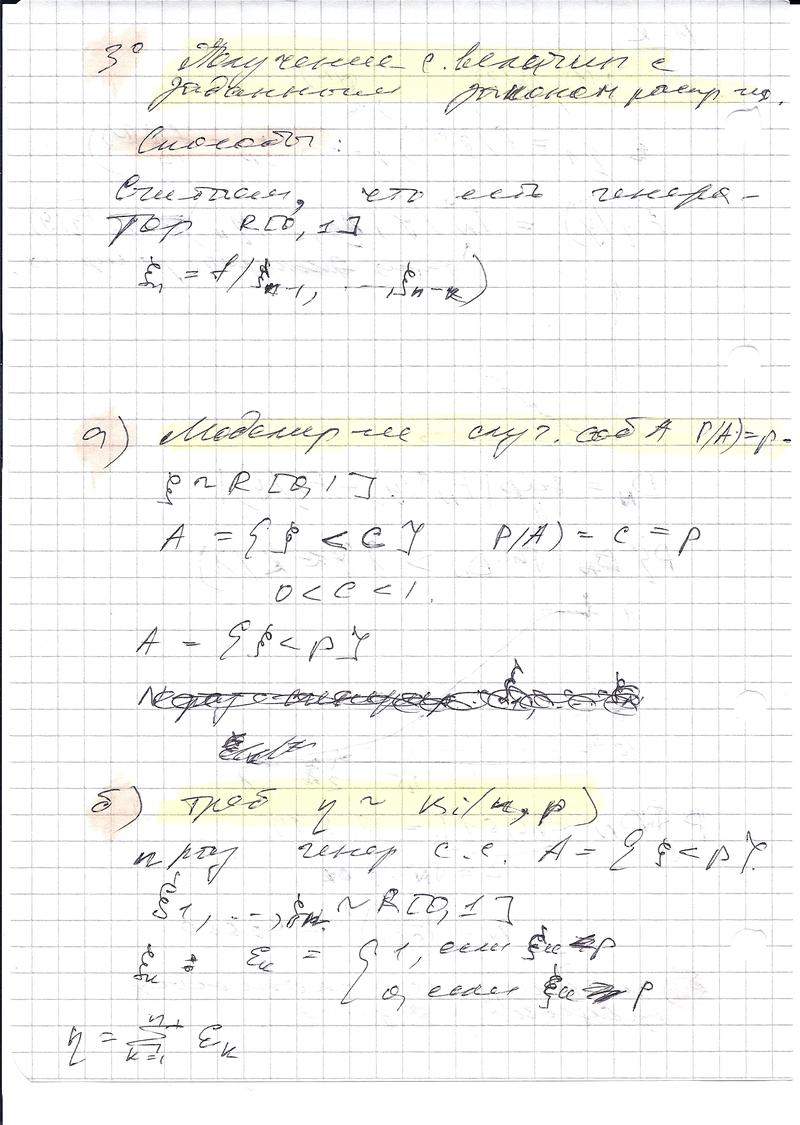 3° Получение с. величин с
заданным законом распр-ия.
Способы:
Считаем, что есть генера-
тор R[0,1]
ξn = f(ξn-1, ..., ξn-k)
а) Моделир-ие случ. соб A P(A)=p.
ξ ~ R[0,1].
A = {ξ < C} P(A) = C = p
0 < C < 1.
A = {ξ < p}
б) треб η ~ Bi(n, p)
n раз генер с.с. A = {ξ < p}.
ξ1, ..., ξn ~ R[0,1]
ξk εk = { 1, если ξk p
0, если ξk p
η = Σ k=1 n εk